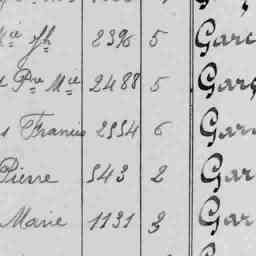 Mie Jh 2396 5 Garc
Pre Mie 2488 5 Garç
s Francis 2554 6 Gar
Pierre 543 2 Gar
Marie 1131 3 Gar